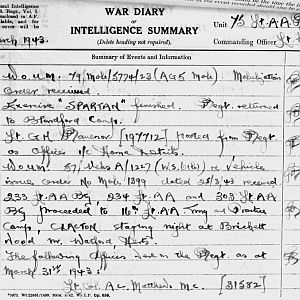 and Intelligence
S. Regs., Vol. I.
WAR DIARY
or
INTELLIGENCE SUMMARY
(Delete heading not required).
Unit 75 Lt. AA
Commanding Officer Lt
March 1943.
Summary of Events and Information
W.O.U.M. 79/Mob/5774/23 (AG5 Mob). Mobilization
Order received.
Exercise "SPARTAN" finished. Regt. returned
to Blandford Camp.
Lt. G.H. [197712] posted from Regt
as Officer i/c Home Details.
W.O.U.M. 57/Vehs A/1227 (W.S.6(b)) re Vehicles
issue order No Mob/1399 dated 25/3/43 received
233 Lt. AA Bty, 234 Lt. AA and 303 Lt. AA
Bty proceeded to 16th AA Trng and Practice
Camp, CLACTON staying night at Bricket
Wood nr. Watford Herts.
The following Officers were in the Regt. as at
March 31st 1943.
Lt. Col. A.C. Matthew M.C. [31582]